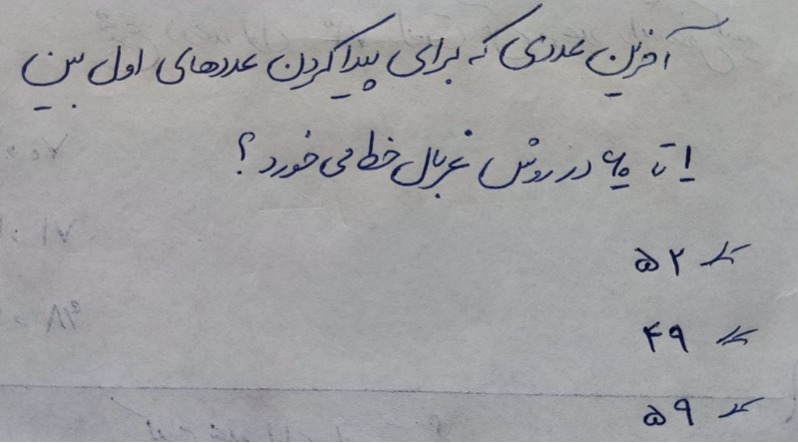 آخرین عددی که برای پیدا کردن عددهای اول بین
۱ تا ۶۰ در روش غربال خط می خورد ؟
۵۲
۴۹
۵۹